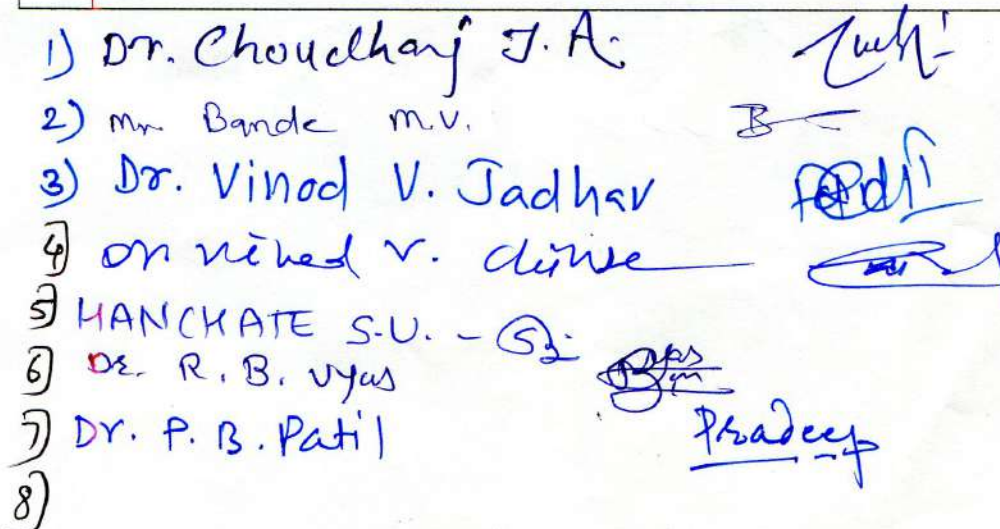 1) Dr. Choudhari J. A.
2) Mr. Bande M.V. B
3) Dr. Vinod V. Jadhav
4) Dr V.
5) HANCHATE S.U. -
6) Dr. R. B. Vyas Vyas
7) Dr. P. B. Patil Pradeep
8)